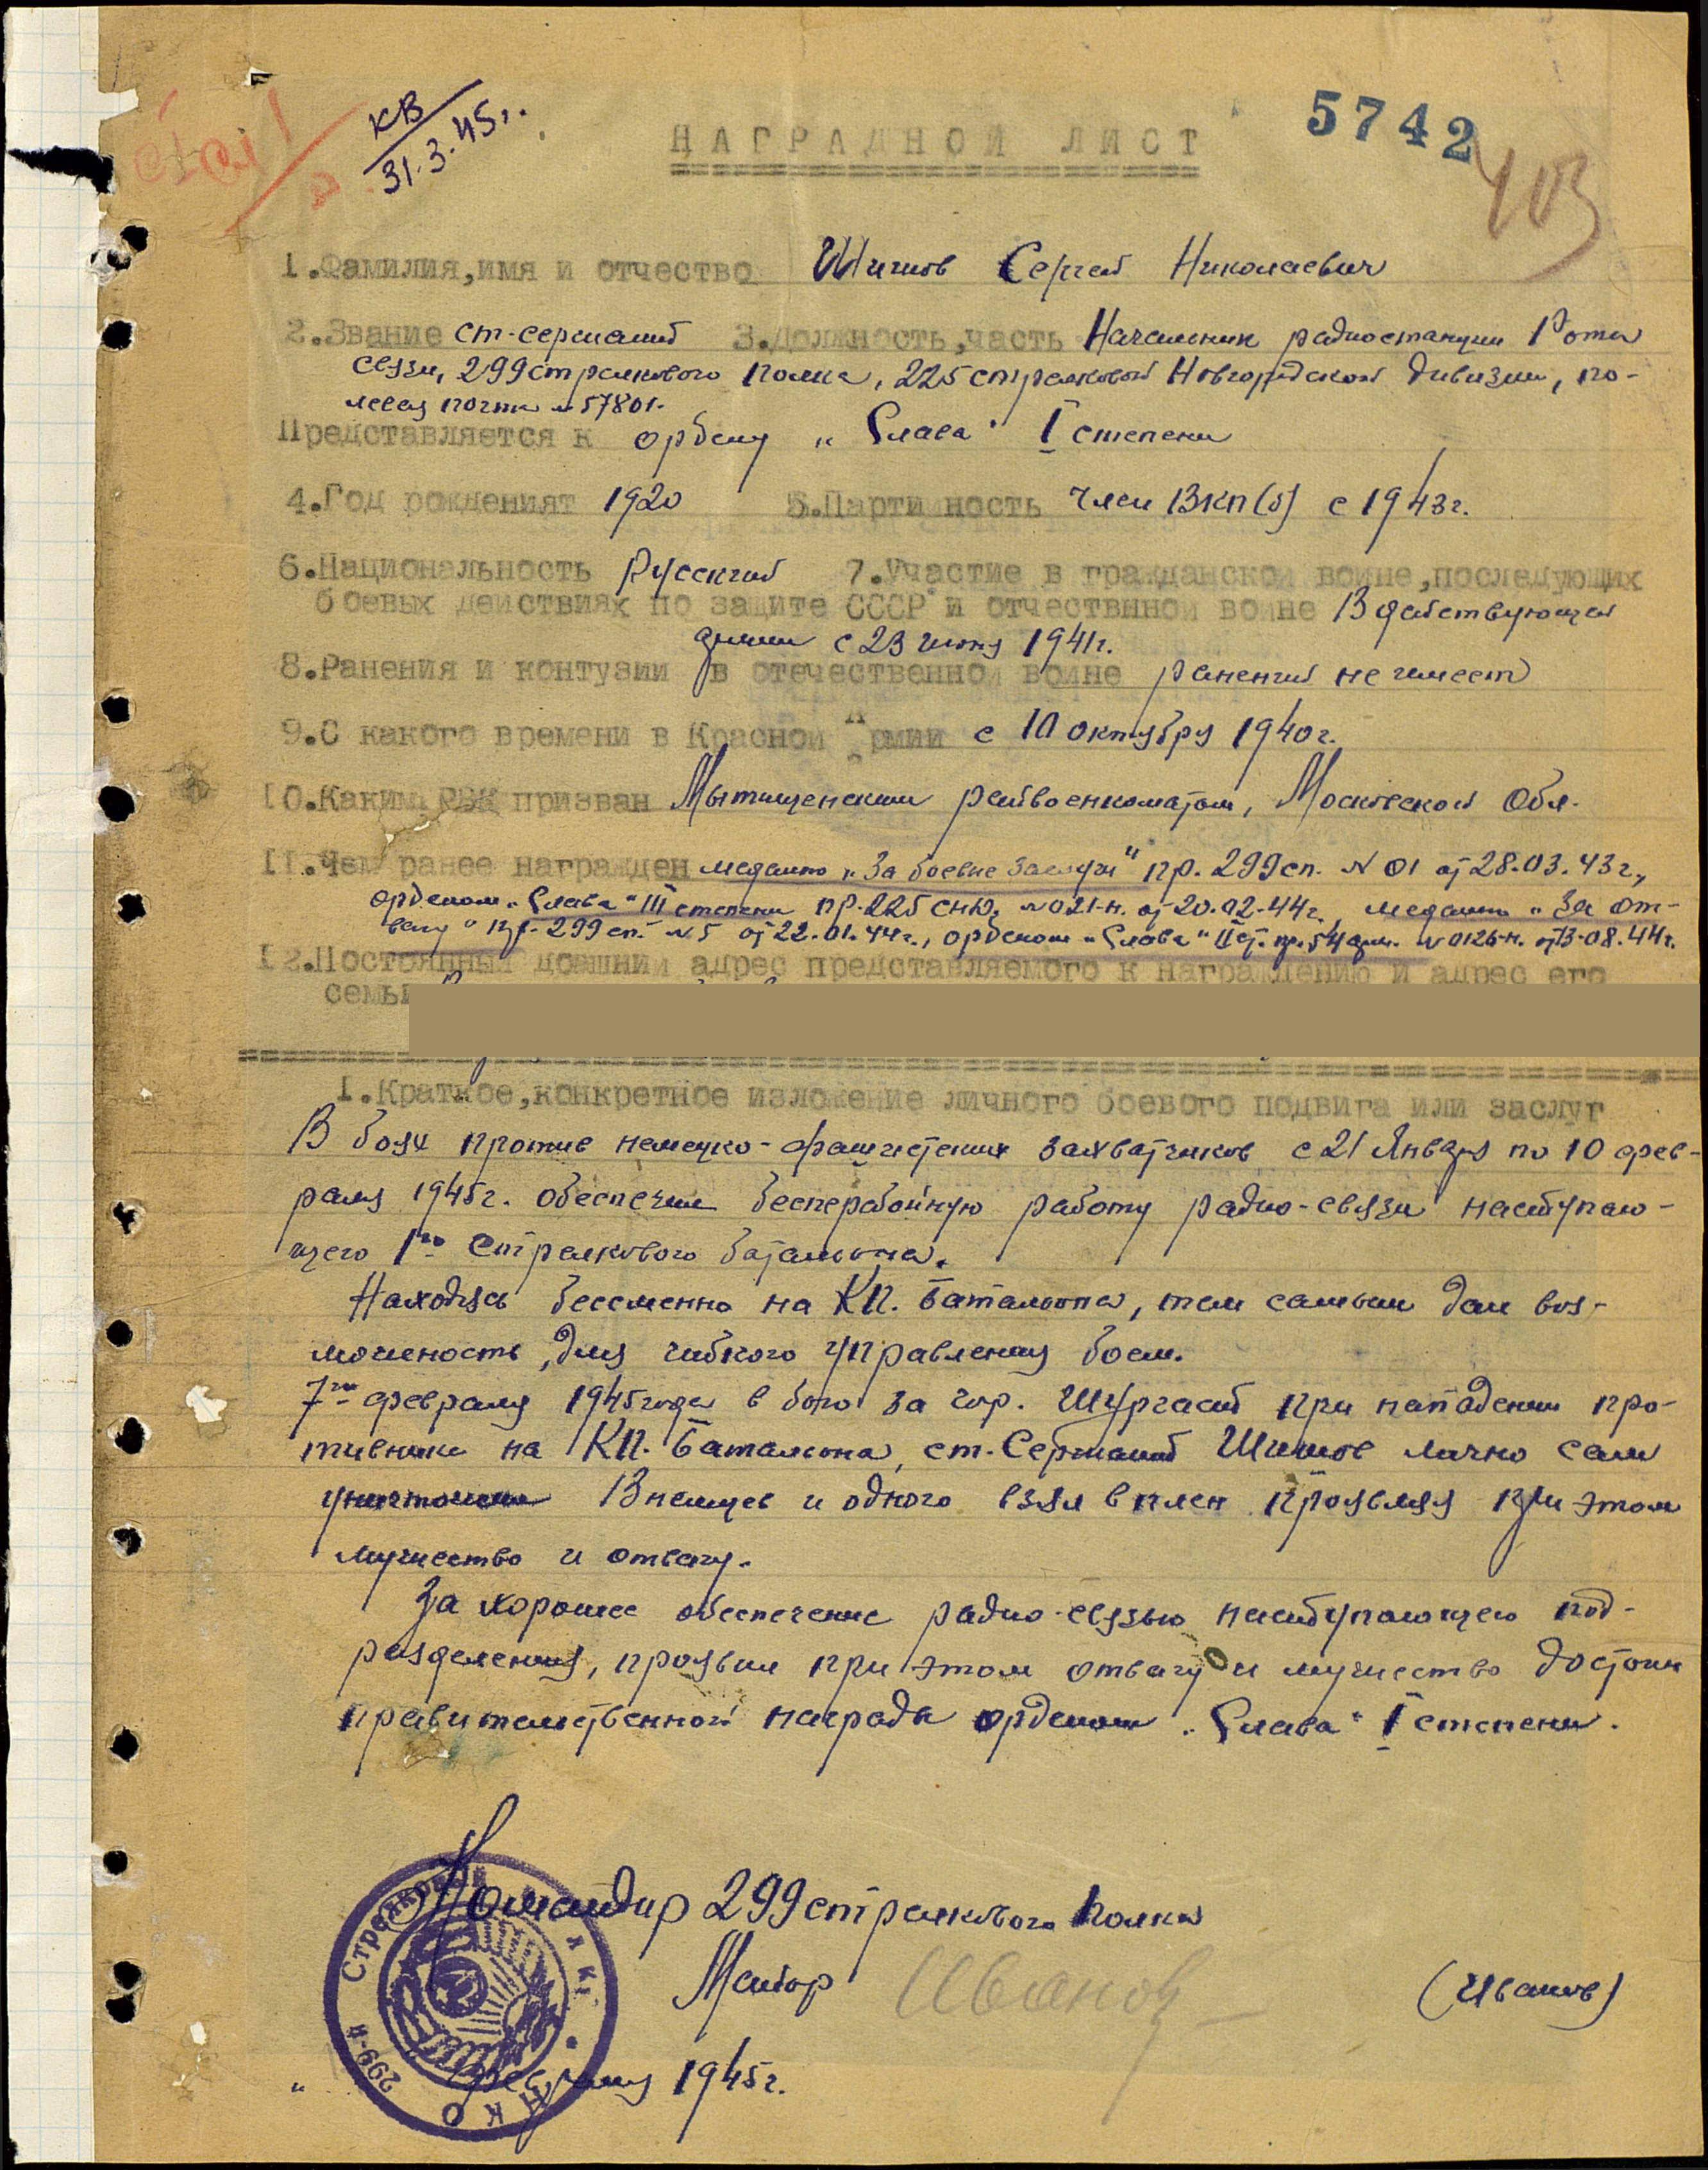 КВ
31.3.45г.
5742
403
НАГРАДНОЙ ЛИСТ
1.Фамилия,имя и отчество Шишов Сергей Николаевич
2.Звание ст-сержант 3.Должность,часть Начальник радиостанции Роты
связи, 299 стрелкового полка, 225 стрелковой Новгородской дивизии, по-
левая почта № 57801.
Представляется к ордену „Слава" I степени
4.Год рожденият 1920 5.Партийность член ВКП(б) с 1943г.
6.Национальность Русский 7.Участие в гражданской воине,последующих
боевых действиях по защите СССР и отчествнной воине В действующей
армии с 23 июня 1941г.
8.Ранения и контузии в отечественной воине ранений не имеет
9.С какого времени в Красной Армии с 10 октября 1940г.
10.Каким РВК призван Мытищенским райвоенкоматом, Московской Обл.
11.Чем ранее награжден медалью „За боевые заслуги" пр. 299 сп. № 01 от 28.03.43г.,
орденом „Слава" III степени пр. 225 СНД, № 021-н. от 20.02.44г., медалью „За от-
вагу" пр. 299 сп. № 5 от 22.01.44г., орденом „Слава" II ст. пр. 54 арм. № 0126-н. от 13-08.44г.
12.Постоянный доашний адрес представляемого к награждению и адрес его
семьи
1.Краткое,конкретное изложение личного боевого подвига или заслуг
В боях против немецко-фашистских захватчиков с 21 Января по 10 фев-
раля 1945г. обеспечил бесперебойную работу радио-связи наступаю-
щего 1го Стрелкового батальона.
Находясь бессменно на КП. батальона, тем самым дал воз-
можность, для гибкого управления боем.
7го февраля 1945 года в бою за гор. Шургаст при нападении про-
тивника на КП. батальона, ст. Сержант Шишов лично сам
уничтожил 13 немцев и одного взял в плен проявляя при этом
мужество и отвагу.
За хорошее обеспечение радио-связью наступающего под-
разделения, проявил при этом отвагу и мужество достоин
правительственной награды орденом „Слава" I степени.
Командир 299 стрелкового полка
Майор Иванов (Иванов)
„ февраля 1945г.
299-й Стрелковый полк
НКО